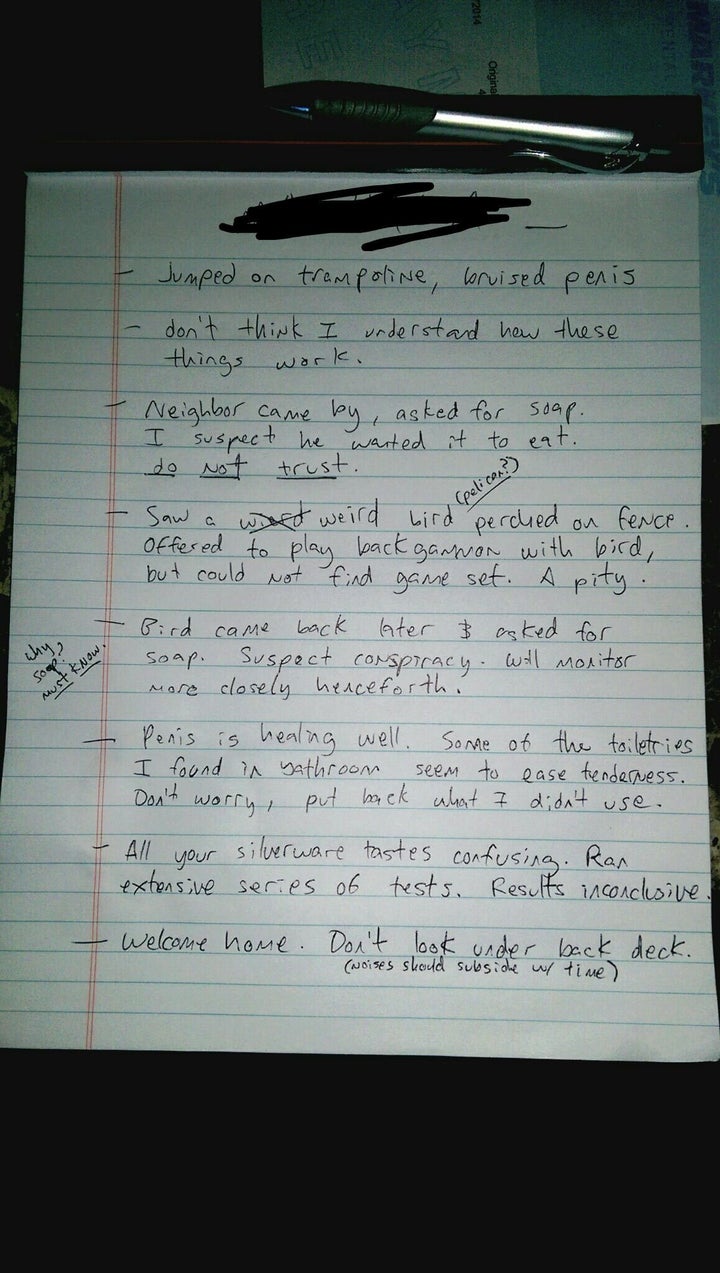 2014
Origina
4
- Jumped on trampoline, bruised penis
- don't think I understand how these
things work.
- Neighbor came by, asked for soap.
I suspect he wanted it to eat.
do not trust.
(pelican?)
- Saw a wierd weird bird perched on fence.
Offered to play backgammon with bird,
but could not find game set. A pity.
- Bird came back later & asked for
soap. Suspect conspiracy. Will monitor
more closely henceforth.
why,
soap?
must know.
- Penis is healing well. Some of the toiletries
I found in bathroom seem to ease tenderness.
Don't worry, put back what I didn't use.
- All your silverware tastes confusing. Ran
extensive series of tests. Results inconclusive.
- Welcome home. Don't look under back deck.
(noises should subside w/ time)